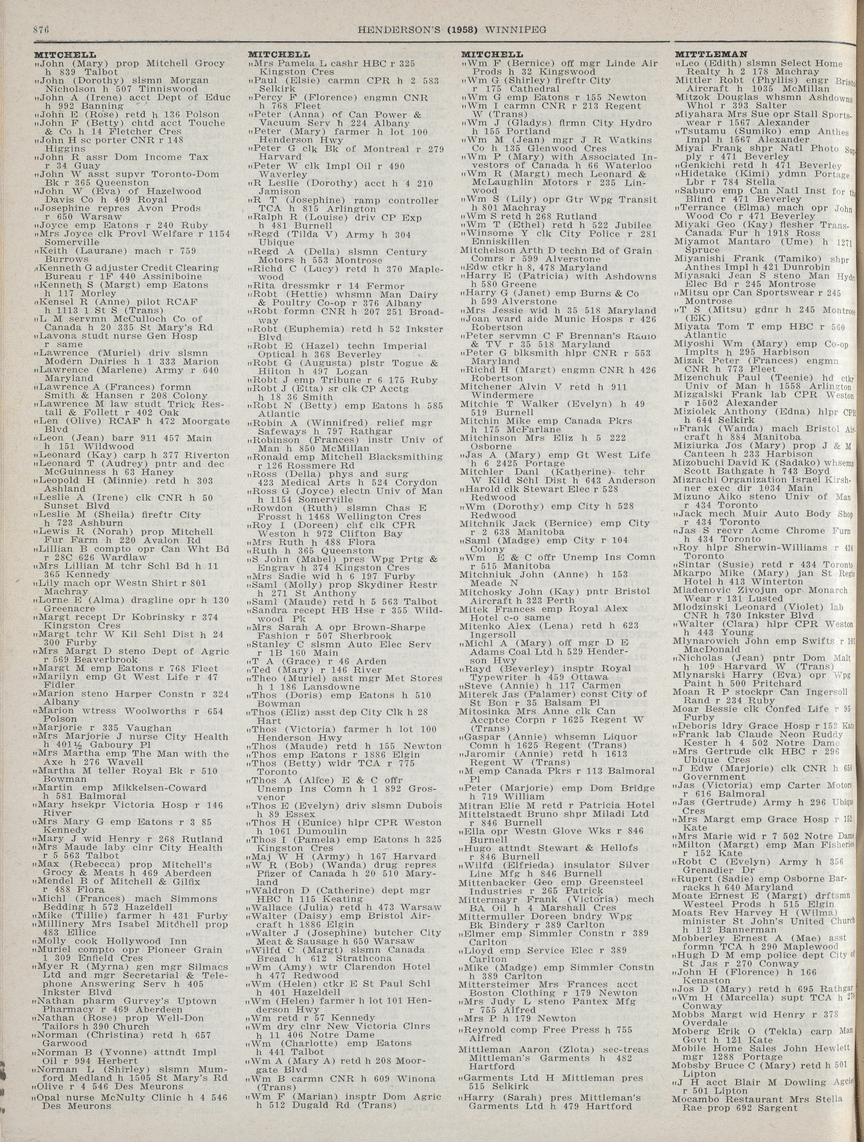 876
HENDERSON'S (1958) WINNIPEG
MITCHELL
"John (Mary) prop Mitchell Grocy
h 839 Talbot
"John (Dorothy) slsmn Morgan
Nicholson h 507 Tinniswood
"John A (Irene) acct Dept of Educ
h 992 Banning
"John E (Rose) retd h 136 Polson
"John F (Betty) chtd acct Touche
& Co h 14 Fletcher Cres
"John H sc porter CNR r 148
Higgins
"John R assr Dom Income Tax
r 34 Guay
"John W asst supvr Toronto-Dom
Bk r 365 Queenston
"John W (Eva) of Hazelwood
Davis Co h 409 Royal
"Josephine repres Avon Prods
r 650 Warsaw
"Joyce emp Eatons r 240 Ruby
"Mrs Joyce clk Provl Welfare r 1154
Somerville
"Keith (Laurane) mach r 759
Burrows
"Kenneth G adjuster Credit Clearing
Bureau r 1F 440 Assiniboine
"Kenneth S (Margt) emp Eatons
h 117 Morley
"Kensel R (Anne) pilot RCAF
h 1113 1 St S (Trans)
"L M servmn McCulloch Co of
Canada h 20 335 St Mary's Rd
"Lavona studt nurse Gen Hosp
r same
"Lawrence (Muriel) driv slsmn
Modern Dairies h 1 333 Marion
"Lawrence (Marlene) Army r 640
Maryland
"Lawrence A (Frances) formn
Smith & Hansen r 208 Colony
"Lawrence M law studt Trick Res-
tall & Follett r 402 Oak
"Len (Olive) RCAF h 472 Moorgate
Blvd
"Leon (Jean) barr 911 457 Main
h 151 Wildwood
"Leonard (Kay) carp h 377 Riverton
"Leonard T (Audrey) pntr and dec
McGuinness h 63 Haney
"Leopold H (Minnie) retd h 303
Ashland
"Leslie A (Irene) clk CNR h 50
Sunset Blvd
"Leslie M (Sheila) fireftr City
h 723 Ashburn
"Lewis R (Norah) prop Mitchell
Fur Farm h 220 Avalon Rd
"Lillian B compto opr Can Wht Bd
r 28C 626 Wardlaw
"Mrs Lillian M tchr Schl Bd h 11
365 Kennedy
"Lily mach opr Westn Shirt r 801
Machray
"Lorne E (Alma) dragline opr h 130
Greenacre
"Margt recept Dr Kobrinsky r 374
Kingston Cres
"Margt tchr W Kil Schl Dist h 24
300 Furby
"Mrs Margt D steno Dept of Agric
r 569 Beaverbrook
"Margt M emp Eatons r 768 Fleet
"Marilyn emp Gt West Life r 47
Fidler
"Marion steno Harper Constn r 324
Albany
"Marion wtress Woolworths r 654
Polson
"Marjorie r 335 Vaughan
"Mrs Marjorie J nurse City Health
h 401½ Gaboury Pl
"Mrs Martha emp The Man with the
Axe h 276 Wavell
"Martha M teller Royal Bk r 510
Bowman
"Martin emp Mikkelsen-Coward
h 581 Balmoral
"Mary hsekpr Victoria Hosp r 146
River
"Mrs Mary G emp Eatons r 3 85
Kennedy
"Mary J wid Henry r 268 Rutland
"Mrs Maude laby clnr City Health
r 5 563 Talbot
"Max (Rebecca) prop Mitchell's
Grocy & Meats h 469 Aberdeen
"Mendel B of Mitchell & Gilfix
r 488 Flora
"Michl (Frances) mach Simmons
Bedding h 572 Hazeldell
"Mike (Tillie) farmer h 431 Furby
"Millinery Mrs Isabel Mitchell prop
483 Ellice
"Molly cook Hollywood Inn
"Muriel compto opr Pioneer Grain
1 309 Enfield Cres
"Myer R (Myrna) gen mgr Silmacs
Ltd and mgr Secretarial & Tele-
phone Answering Serv h 405
Inkster Blvd
"Nathan pharm Gurvey's Uptown
Pharmacy r 469 Aberdeen
"Nathan (Rose) prop Well-Don
Tailors h 390 Church
"Norman (Christina) retd h 657
Garwood
"Norman B (Yvonne) attndt Impl
Oil r 994 Herbert
"Norman L (Shirley) slsmn Mum-
ford Medland h 1505 St Mary's Rd
"Olive r 4 546 Des Meurons
"Opal nurse McNulty Clinic h 4 546
Des Meurons
MITCHELL
"Mrs Pamela L cashr HBC r 325
Kingston Cres
"Paul (Elsie) carmn CPR h 2 583
Selkirk
"Percy F (Florence) engmn CNR
h 768 Fleet
"Peter (Anna) of Can Power &
Vacuum Serv h 224 Albany
"Peter (Mary) farmer h lot 100
Henderson Hwy
"Peter G clk Bk of Montreal r 279
Harvard
"Peter W clk Impl Oil r 490
Waverley
"R Leslie (Dorothy) acct h 4 210
Jamison
"R T (Josephine) ramp controller
TCA h 815 Arlington
"Ralph R (Louise) driv CP Exp
h 481 Burnell
"Regd (Tilda V) Army h 304
Ubique
"Regd A (Della) slsmn Century
Motors h 553 Montrose
"Richd C (Lucy) retd h 370 Maple-
wood
"Rita dressmkr r 14 Fermor
"Robt (Hettie) whsmn Man Dairy
& Poultry Co-op r 376 Albany
"Robt formn CNR h 207 251 Broad-
way
"Robt (Euphemia) retd h 52 Inkster
Blvd
"Robt E (Hazel) techn Imperial
Optical h 368 Beverley
"Robt G (Augusta) plstr Togue &
Hilton h 497 Logan
"Robt J emp Tribune r 6 175 Ruby
"Robt J (Etta) sr clk CP Acctg
h 18 36 Smith
"Robt N (Betty) emp Eatons h 585
Atlantic
"Robin A (Winnifred) relief mgr
Safeways h 797 Rathgar
"Robinson (Frances) instr Univ of
Man h 850 McMillan
"Ronald emp Mitchell Blacksmithing
r 126 Rossmere Rd
"Ross (Della) phys and surg
423 Medical Arts h 524 Corydon
"Ross G (Joyce) electn Univ of Man
h 1154 Somerville
"Rowdon (Ruth) slsmn Chas E
Frosst h 1468 Wellington Cres
"Roy L (Doreen) chf clk CPR
Weston h 972 Clifton Bay
"Mrs Ruth h 488 Flora
"Ruth h 365 Queenston
"S John (Mabel) pres Wpg Prtg &
Engrav h 374 Kingston Cres
"Mrs Sadie wid h 6 197 Furby
"Saml (Molly) prop Skydiner Restr
h 271 St Anthony
"Saml (Maude) retd h 5 563 Talbot
"Sandra recept HB Hse r 355 Wild-
wood Pk
"Mrs Sarah A opr Brown-Sharpe
Fashion r 507 Sherbrook
"Stanley C slsmn Auto Elec Serv
r 1B 160 Main
"T A (Grace) r 46 Arden
"Ted (Mary) r 146 River
"Theo (Muriel) asst mgr Met Stores
h 1 186 Lansdowne
"Thos (Doris) emp Eatons h 510
Bowman
"Thos (Eliz) asst dep City Clk h 28
Hart
"Thos (Victoria) farmer h lot 100
Henderson Hwy
"Thos (Maude) retd h 155 Newton
"Thos emp Eatons r 1886 Elgin
"Thos (Betty) wldr TCA r 775
Toronto
"Thos A (Alice) E & C offr
Unemp Ins Comn h 1 892 Gros-
venor
"Thos E (Evelyn) driv slsmn Dubois
h 89 Essex
"Thos H (Eunice) hlpr CPR Weston
h 1061 Dumoulin
"Thos I (Pamela) emp Eatons h 325
Kingston Cres
"Maj W H (Army) h 167 Harvard
"W R (Bob) (Wanda) drug repres
Pfizer of Canada h 20 510 Mary-
land
"Waldron D (Catherine) dept mgr
HBC h 115 Keating
"Wallace (Julia) retd h 473 Warsaw
"Walter (Daisy) emp Bristol Air-
craft h 1886 Elgin
"Walter J (Josephine) butcher City
Meat & Sausage h 650 Warsaw
"Wilfd C (Margt) slsmn Canada
Bread h 612 Strathcona
"Wm (Amy) wtr Clarendon Hotel
h 477 Redwood
"Wm (Helen) ctkr E St Paul Schl
h 401 Hazeldell
"Wm (Helen) farmer h lot 101 Hen-
derson Hwy
"Wm retd r 57 Kennedy
"Wm dry clnr New Victoria Clnrs
h 11 406 Notre Dame
"Wm (Charlotte) emp Eatons
h 441 Talbot
"Wm A (Mary A) retd h 208 Moor-
gate Blvd
"Wm B carmn CNR h 609 Winona
(Trans)
"Wm F (Marian) insptr Dom Agric
h 512 Dugald Rd (Trans)
MITCHELL
"Wm F (Bernice) off mgr Linde Air
Prods h 32 Kingswood
"Wm G (Shirley) fireftr City
r 175 Cathedral
"Wm G emp Eatons r 155 Newton
"Wm I carmn CNR r 213 Regent
W (Trans)
"Wm J (Gladys) firmn City Hydro
h 155 Portland
"Wm M (Jean) mgr J R Watkins
Co h 135 Glenwood Cres
"Wm P (Mary) with Associated In-
vestors of Canada h 66 Waterloo
"Wm R (Margt) mech Leonard &
McLaughlin Motors r 235 Lin-
wood
"Wm S (Lily) opr Gtr Wpg Transit
h 801 Machray
"Wm S retd h 268 Rutland
"Wm T (Ethel) retd h 522 Jubilee
"Winsome Y clk City Police r 281
Enniskillen
Mitchelson Arth D techn Bd of Grain
Comrs r 599 Alverstone
"Edw ctkr h 8, 478 Maryland
"Harry E (Patricia) with Ashdowns
h 580 Greene
"Harry G (Janet) emp Burns & Co
h 599 Alverstone
"Mrs Jessie wid h 35 518 Maryland
"Joan ward aide Munic Hosps r 426
Robertson
"Peter servmn C F Brennan's Radio
& TV r 35 518 Maryland
"Peter G blksmith hlpr CNR r 553
Maryland
"Richd H (Margt) engmn CNR r 426
Robertson
Mitchener Alvin V retd h 911
Windermere
Mitchie T Walker (Evelyn) h 49
519 Burnell
Mitchin Mike emp Canada Pkrs
h 175 McFarlane
Mitchinson Mrs Eliz h 5 222
Osborne
"Jas A (Mary) emp Gt West Life
h 6 2425 Portage
Mitchler Danl (Katherine) tchr
W Kild Schl Dist h 643 Anderson
"Harold clk Stewart Elec r 528
Redwood
"Wm (Dorothy) emp City h 528
Redwood
Mitchnik Jack (Bernice) emp City
r 2 638 Manitoba
"Saml (Madge) emp City r 104
Colony
"Wm E & C offr Unemp Ins Comn
r 515 Manitoba
Mitchniuk John (Anne) h 153
Meade N
Mitchosky John (Kay) pntr Bristol
Aircraft h 323 Perth
Mitek Frances emp Royal Alex
Hotel c-o same
Mitenko Alex (Lena) retd h 623
Ingersoll
"Michl A (Mary) off mgr D E
Adams Coal Ltd h 529 Hender-
son Hwy
"Rayd (Beverley) insptr Royal
Typewriter h 459 Ottawa
"Steve (Annie) h 117 Carmen
Miterek Jas (Palamer) const City of
St Bon r 35 Balsam Pl
Mitosinka Mrs Anne clk Can
Accptce Corpn r 1625 Regent W
(Trans)
"Gaspar (Annie) whsemn Liquor
Comn h 1625 Regent (Trans)
"Jaromir (Annie) retd h 1613
Regent W (Trans)
"M emp Canada Pkrs r 113 Balmoral
Pl
"Peter (Marjorie) emp Dom Bridge
h 719 William
Mitran Elie M retd r Patricia Hotel
Mittelstaedt Bruno shpr Miladi Ltd
r 846 Burnell
"Ella opr Westn Glove Wks r 846
Burnell
"Hugo attndt Stewart & Hellofs
r 846 Burnell
"Wilfd (Elfrieda) insulator Silver
Line Mfg h 846 Burnell
Mittenbacker Geo emp Greensteel
Industries r 265 Patrick
Mittermayr Frank (Victoria) mech
BA Oil h 4 Marshall Cres
Mittermuller Doreen bndry Wpg
Bk Bindery r 389 Carlton
"Elmer emp Simmler Constn r 389
Carlton
"Lloyd emp Service Elec r 389
Carlton
"Mike (Madge) emp Simmler Constn
h 389 Carlton
Mittersteimer Mrs Frances acct
Boston Clothing r 179 Newton
"Mrs Judy L steno Pantex Mfg
r 755 Alfred
"Mrs P h 179 Newton
"Reynold comp Free Press h 755
Alfred
Mittleman Aaron (Zlota) sec-treas
Mittleman's Garments h 482
Hartford
"Garments Ltd H Mittleman pres
515 Selkirk
"Harry (Sarah) pres Mittleman's
Garments Ltd h 479 Hartford
MITTLEMAN
"Leo (Edith) slsmn Select Home
Realty h 2 178 Machray
Mittler Robt (Phyllis) engr Bristol
Aircraft h 1035 McMillan
Mitzok Douglas whsmn Ashdowns
Whol r 393 Salter
Miyahara Mrs Sue opr Stall Sports-
wear r 1567 Alexander
"Tsutamu (Sumiko) emp Anthes
Impl h 1567 Alexander
Miyai Frank shpr Natl Photo Sup
ply r 471 Beverley
"Genkichi retd h 471 Beverley
"Hidetake (Kimi) ydmn Portage
Lbr r 784 Stella
"Saburo emp Can Natl Inst for th
Blind r 471 Beverley
"Terrance (Elma) mach opr John
Wood Co r 471 Beverley
Miyaki Geo (Kay) flesher Trans-
Canada Fur h 1918 Ross
Miyamot Mantaro (Ume) h 1271
Spruce
Miyanishi Frank (Tamiko) shpr
Anthes Impl h 421 Dunrobin
Miyasaki Jean S steno Man Hyde
Elec Bd r 245 Montrose
"Mitsu opr Can Sportswear r 245
Montrose
"T S (Mitsu) gdnr h 245 Montrose
(EK)
Miyata Tom T emp HBC r 560
Atlantic
Miyoshi Wm (Mary) emp Co-op
Implts h 295 Harbison
Mizak Peter (Frances) engmn
CNR h 773 Fleet
Mizenchuk Paul (Teenie) hd ctkr
Univ of Man h 1558 Arlington
Mizgalski Frank lab CPR Weston
r 1502 Alexander
Miziolek Anthony (Edna) hlpr CPR
h 644 Selkirk
"Frank (Wanda) mach Bristol Air
craft h 884 Manitoba
Miziurka Jos (Mary) prop J & M
Canteen h 233 Harbison
Mizobuchi David K (Sadako) whsemn
Scott Bathgate h 743 Boyd
Mizrachi Organization Israel Kirsh-
ner exec dir 1034 Main
Mizuno Aiko steno Univ of Man
r 434 Toronto
"Jack mech Muir Auto Body Shop
r 434 Toronto
"Jas S recvr Acme Chrome Furn
h 434 Toronto
"Roy hlpr Sherwin-Williams r 434
Toronto
"Sintar (Susie) retd r 434 Toronto
Mkarpo Mike (Mary) jan St Regis
Hotel h 413 Winterton
Mladenovic Zivojun opr Monarch
Wear r 131 Lusted
Mlodzinski Leonard (Violet) lab
CNR h 730 Inkster Blvd
"Walter (Clara) hlpr CPR Weston
h 443 Young
Mlynarowich John emp Swifts r
MacDonald
"Nicholas (Jean) pntr Dom Malt
h 109 Harvard W (Trans)
Mlynarski Harry (Eva) opr Wpg
Paint h 500 Pritchard
Moan R P stockpr Can Ingersoll
Rand r 234 Ruby
Moar Bessie clk Confed Life r 95
Furby
"Deboris ldry Grace Hosp r 152 Kate
"Frank lab Claude Neon Ruddy
Kester h 4 502 Notre Dame
"Mrs Gertrude clk HBC r 296
Ubique Cres
"J Edw (Marjorie) clk CNR h 656
Government
"Jas (Victoria) emp Carter Motors
r 616 Balmoral
"Jas (Gertrude) Army h 296 Ubique
Cres
"Mrs Margt emp Grace Hosp r 152
Kate
"Mrs Marie wid r 7 502 Notre Dame
"Milton (Margt) emp Man Fisheries
r 152 Kate
"Robt C (Evelyn) Army h 356
Grenadier Dr
"Rupert (Sadie) emp Osborne Bar-
racks h 640 Maryland
Moate Ernest E (Margt) drftsmn
Westeel Prods h 515 Elgin
Moats Rev Harvey H (Wilma)
minister St John's United Church
h 112 Bannerman
Mobberley Ernest A (Mae) asst
formn TCA h 290 Maplewood
"Hugh D M emp police dept City of
St Jas r 270 Conway
"John H (Florence) h 166
Kenaston
"Jos D (Mary) retd h 695 Rathgar
"Wm H (Marcella) supt TCA h
Conway
Mobbs Margt wid Henry r 378
Overdale
Moberg Erik O (Tekla) carp Man
Govt h 121 Kate
Mobile Home Sales John Hewlett
mgr 1288 Portage
Mobsby Bruce C (Mary) retd h 501
Lipton
"J H acct Blair M Dowling Agcie
r 501 Lipton
Mocambo Restaurant Mrs Stella
Rae prop 692 Sargent